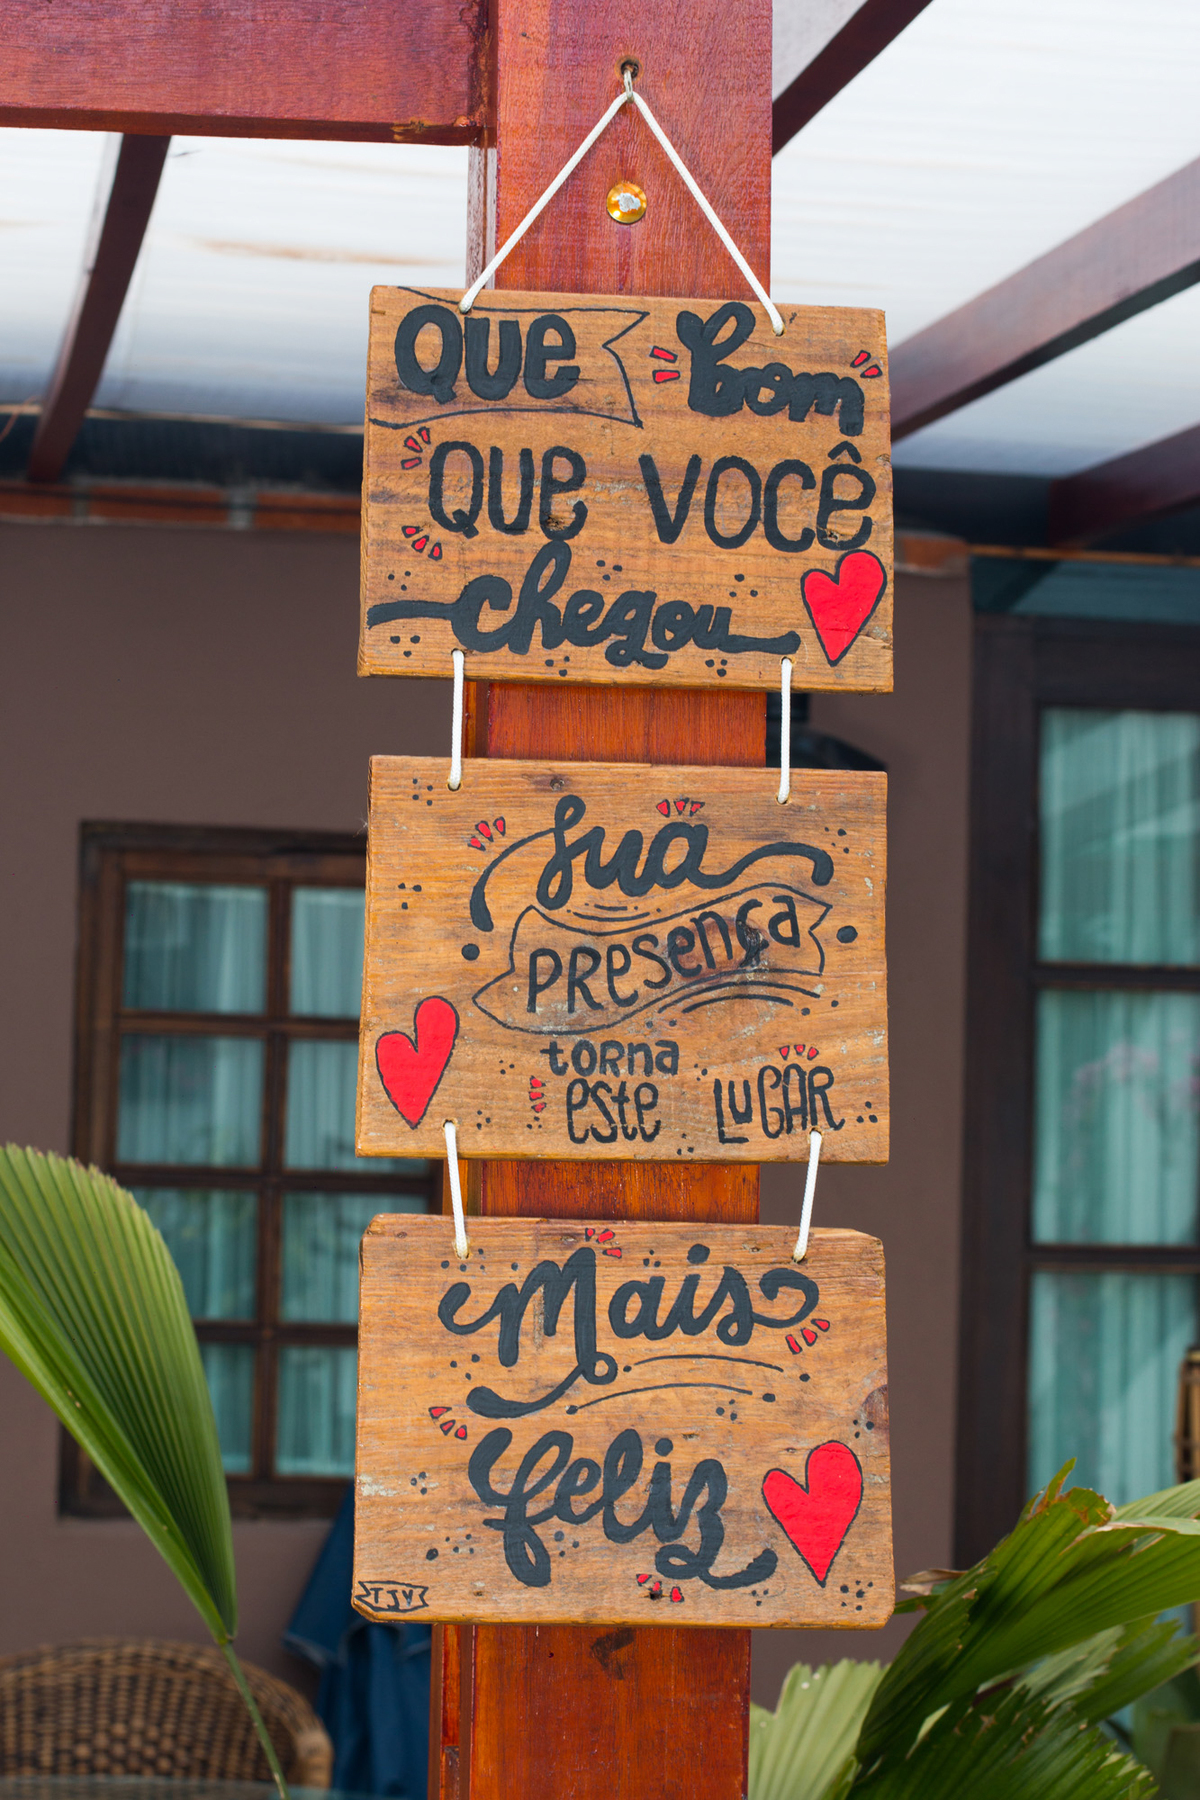 Que bom
Que você
chegou
Sua
Presença
torna
este LUGAR
Mais
feliz
TJV